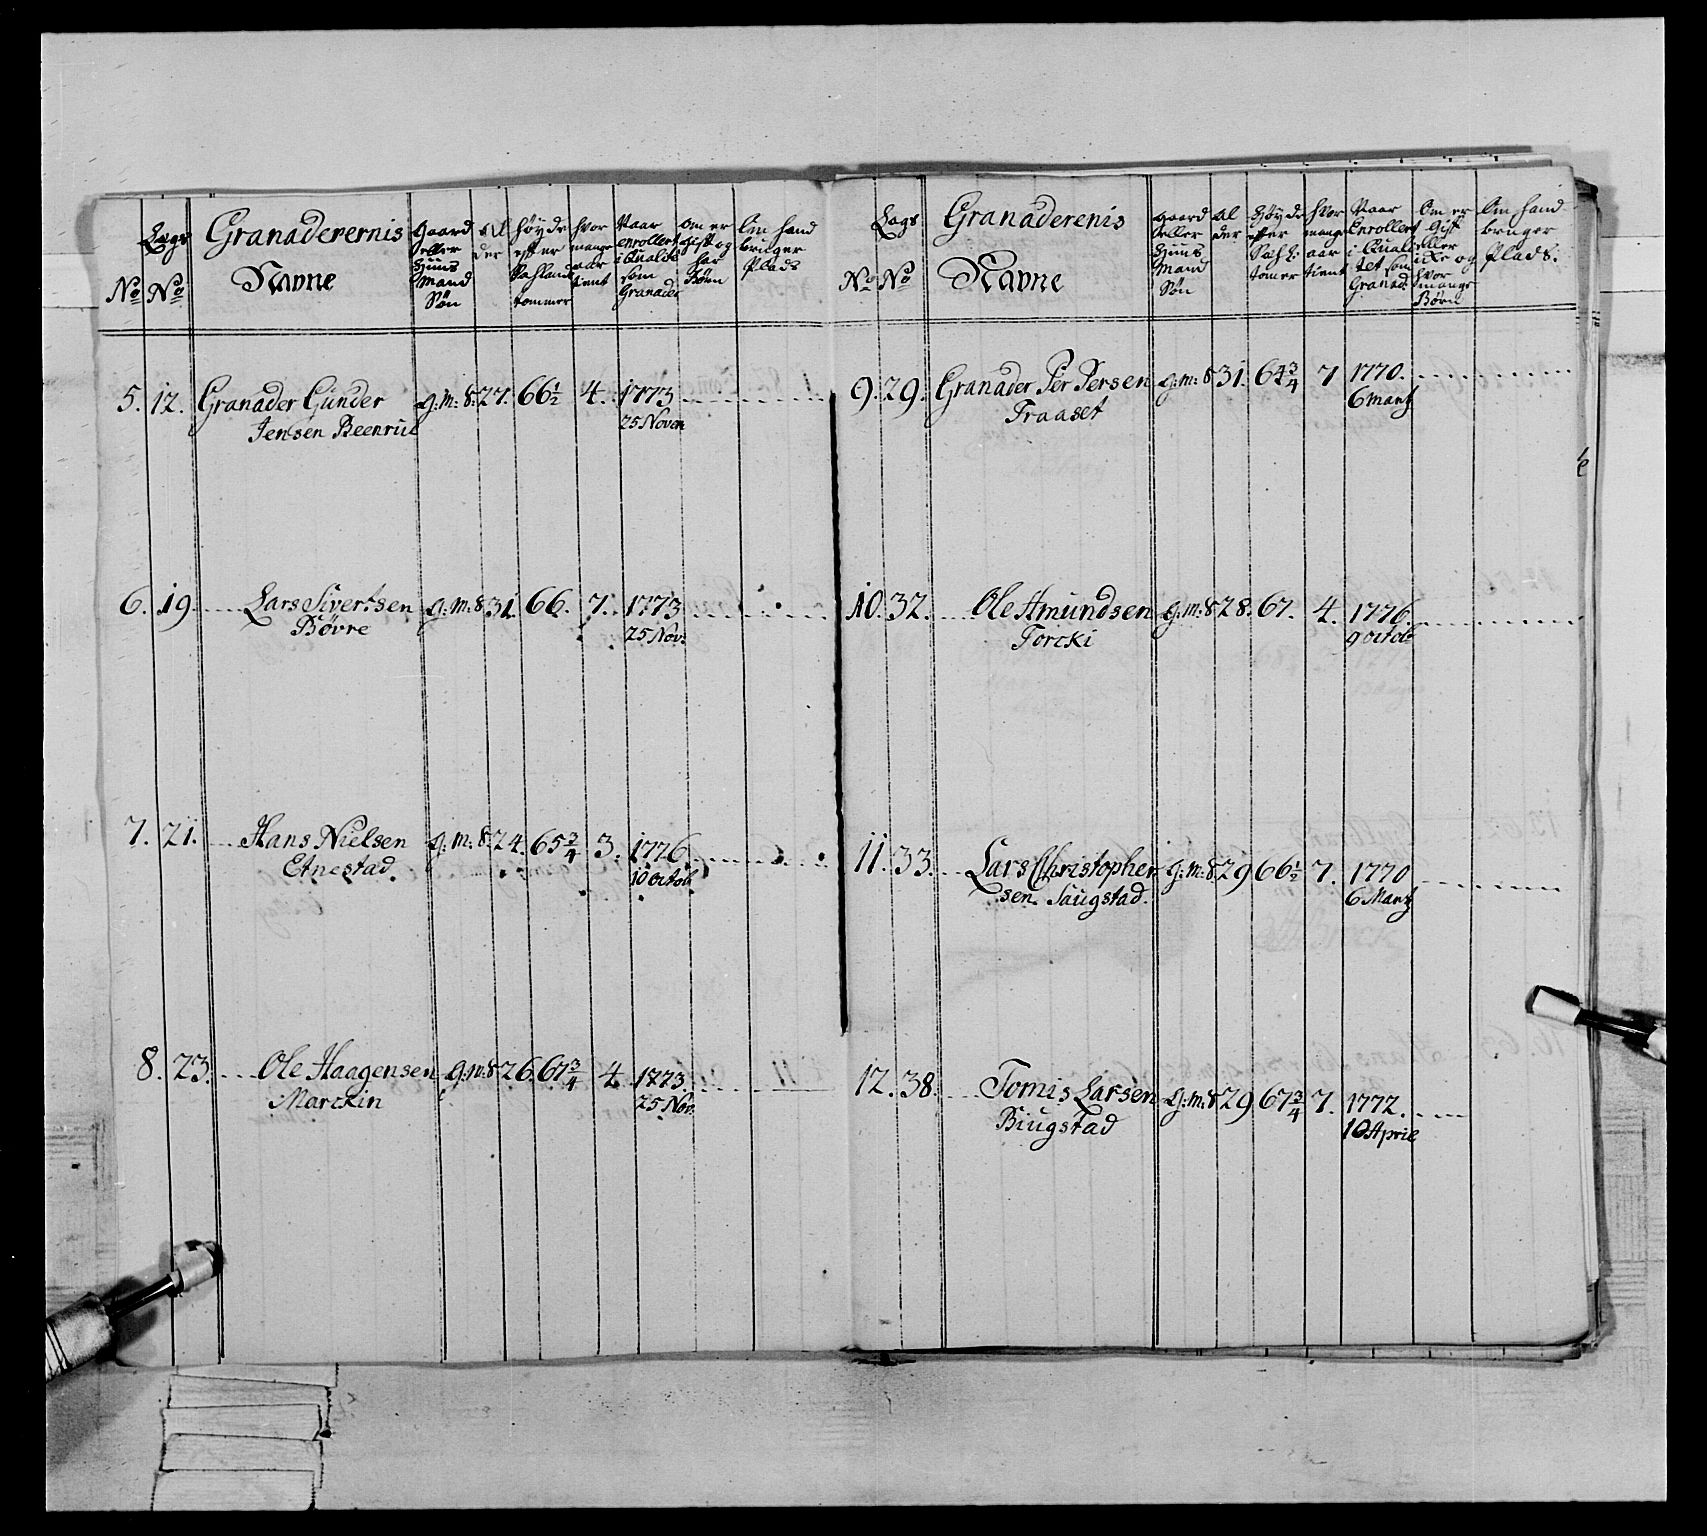 No
Lægs No
Granaderernis Navne
Gaard eller Huus Mand Søn
Al der
høyde efter Sahlands tommer
hvor mange aar tient
Naar enrollert i Qualite som Granader
om er gift og har Børn
Om hand bruger Plads
5. 12. Granader Gunder g: m: S: 27. 66 1/2 4. 1773
Jensen Beenrüe 25 Novem
6. 19. Lars Sivertsen g: m: S 31. 66. 7. 1773
Bøvre 25 Nov:
7. 21. Hans Nielsen g: m: S. 24. 65 3/4 3. 1776
Etnestad. 10 octob.
8. 23. Ole Haagensen g: m: S 26. 67 3/4 4 1773.
Marckin 25 Nov.
No
Lægs No
Granaderenis Navne
gaard eller Huus Mand Søn
Al der
Høyde efter Sahl: tomer
hvor mange aar tient
Naar Enrollert i Qualitet som Granad:
Om er Gift eller icke og hvor mange Børn
Om hand bruger Plads.
9. 29. Granader Per Persen g: m: S 31. 64 3/4 7 1770.
Fraaset 6 Martz
10. 32. Ole Amundsen g: m: S 28. 67. 4. 1776.
Torcki 9 octob
11. 33. Lars Christopher g: m: S 29 66 1/2 7. 1770
sen Saugstad. 6 Martz
12. 38. Tomis Larsen g: m: S 29 67 3/4 7. 1772.
Biugstad 10 April